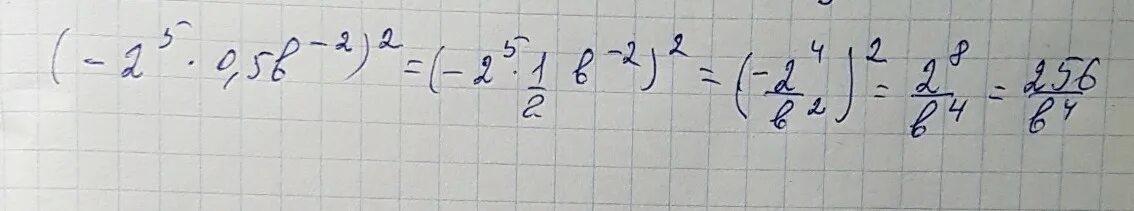 (-2⁵ · 0,5в⁻²)² = (-2⁵ · 1/2 в⁻²)² = (-2⁴/в²)² = 2⁸/в⁴ = 256/в⁴